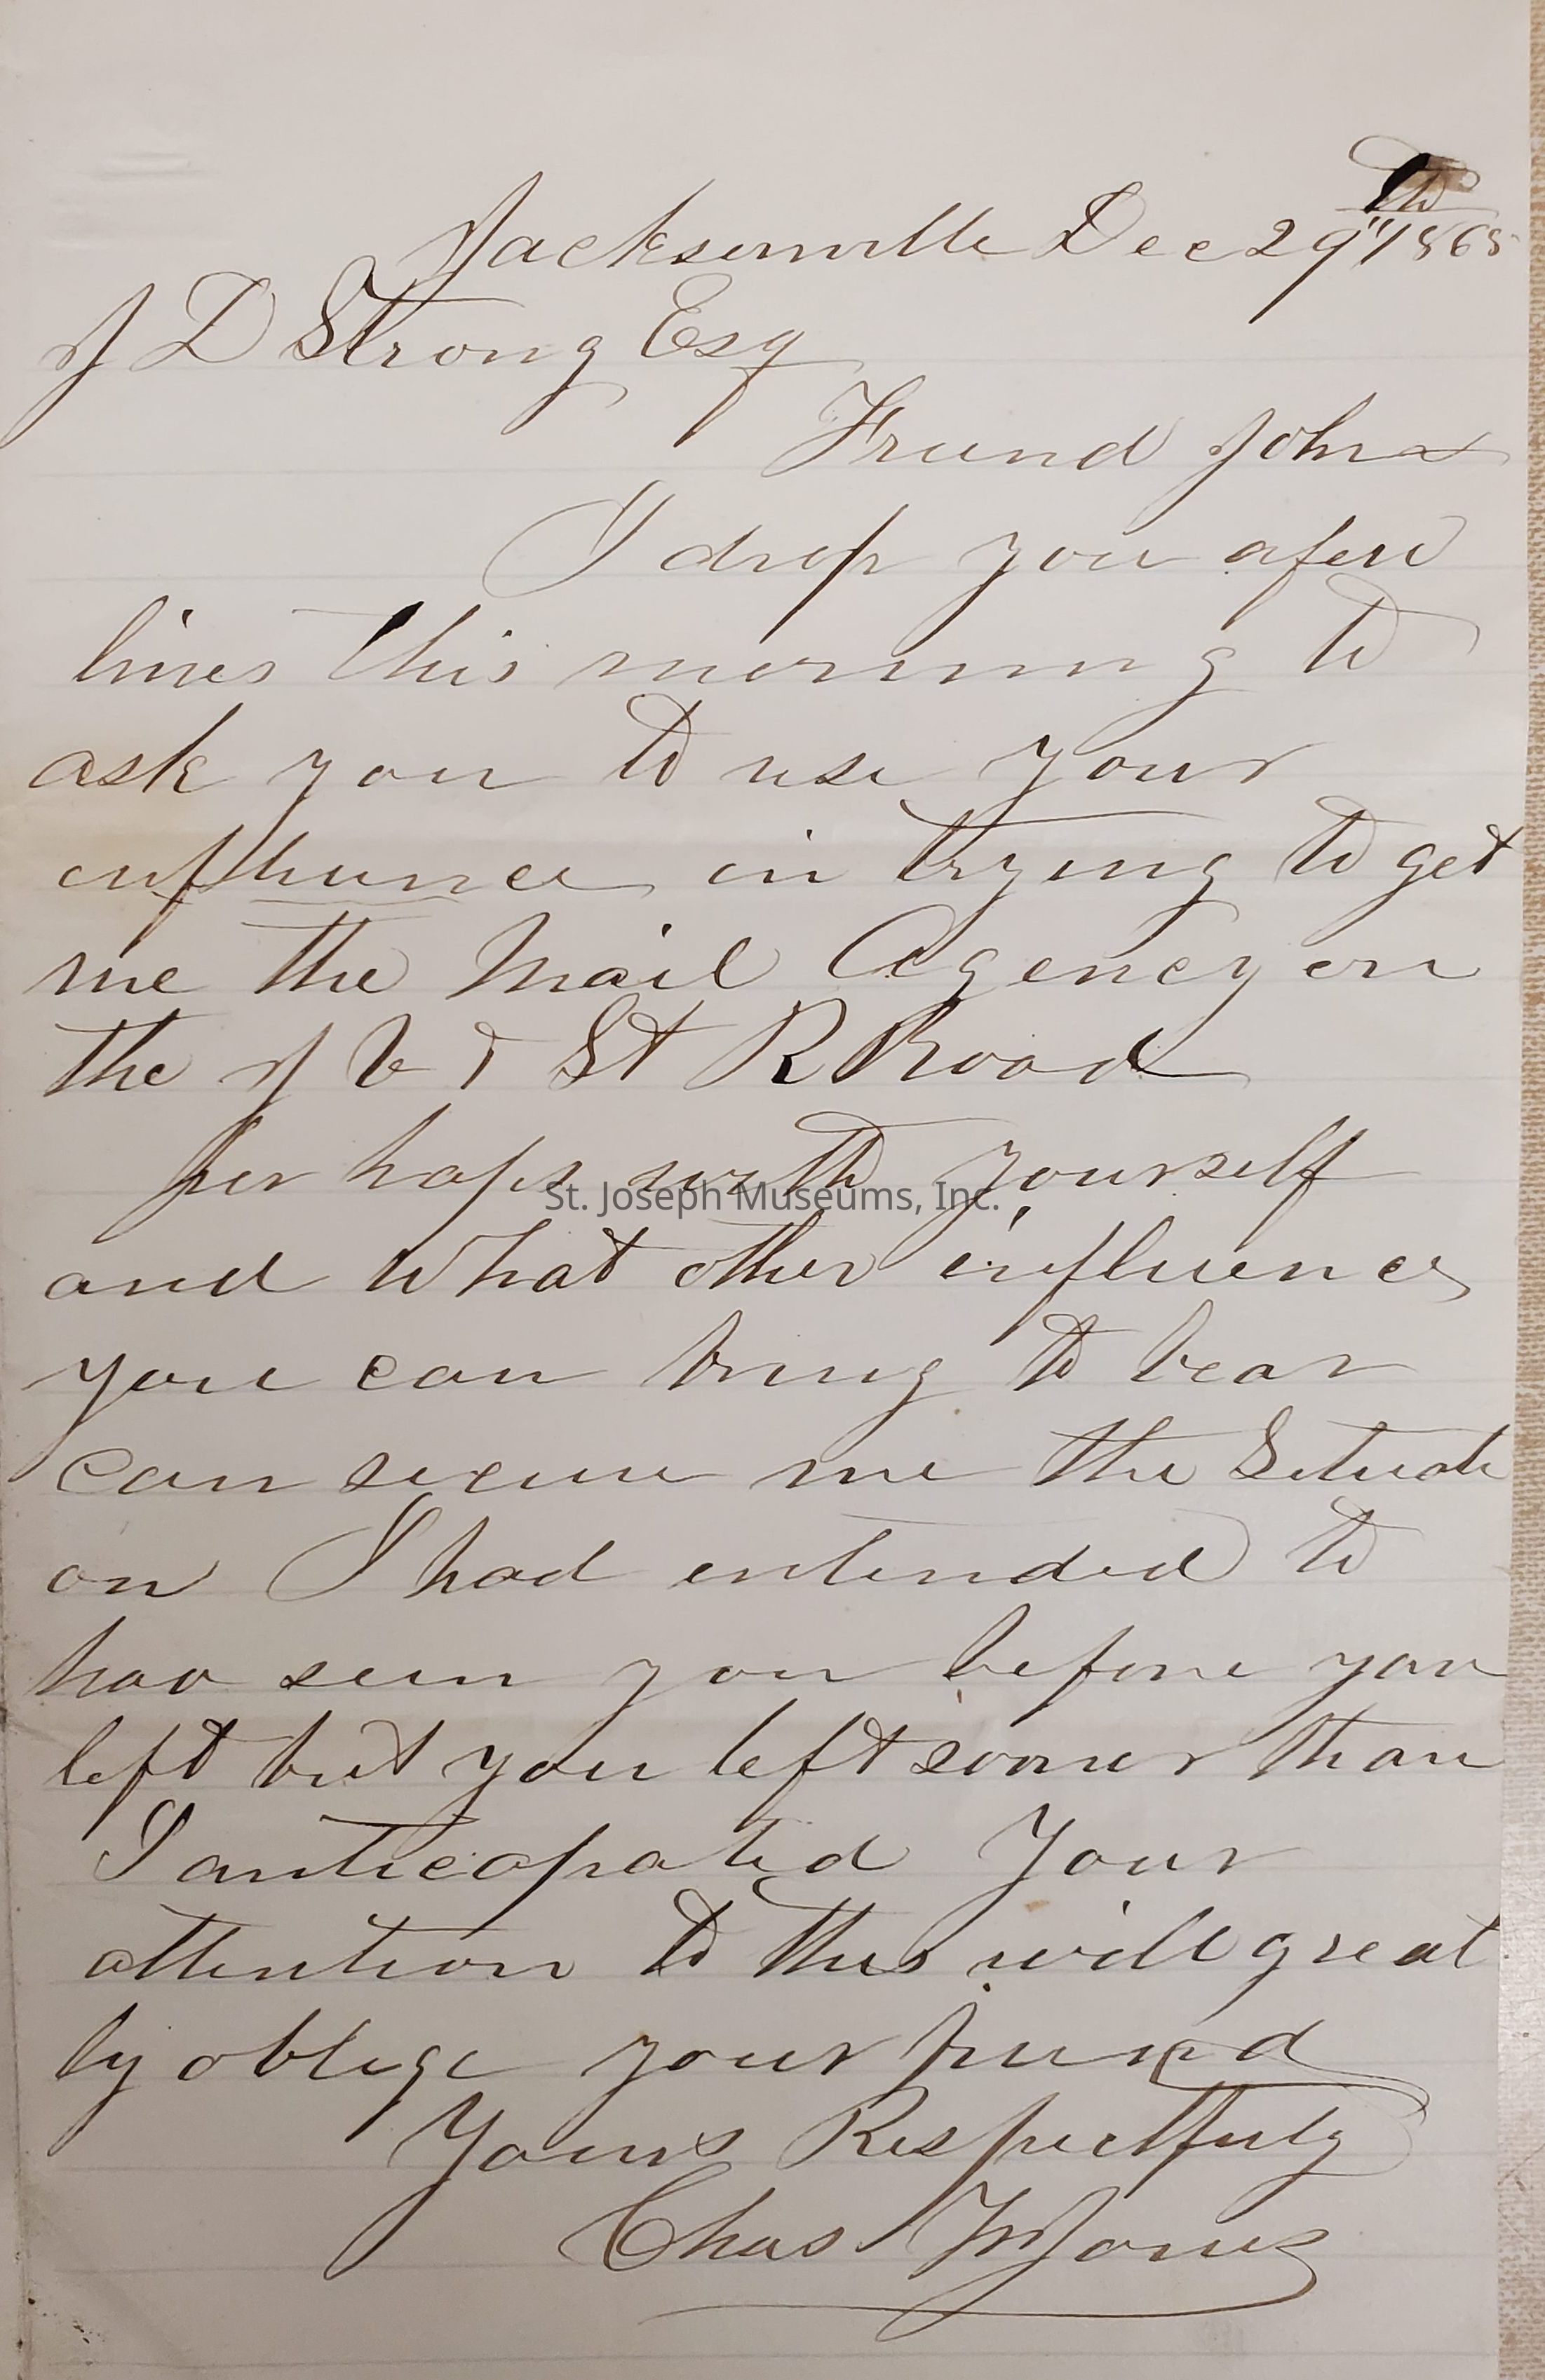 Jacksonville Dec 29th 1865
J D Strong Esq
Friend John
I drop you a few
lines this morning to
ask you to use your
influence in trying to get
me the Mail Agency on
the J & St R Road
per haps with yourself
St. Joseph Museums, Inc.
and what other influence
you can bring to bear
can secure me the Situati
on I had intended to
hav seen you before you
left but you left sooner than
I anticapated Your
attention to this will great
ly oblige your friend
Yours Respectfuly
Chas Jones